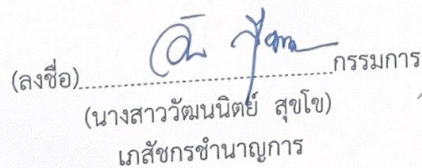 (ลงชื่อ)....................................กรรมการ
(นางสาววัฒนนิตย์ สุขโข)
เภสัชกรชำนาญการ